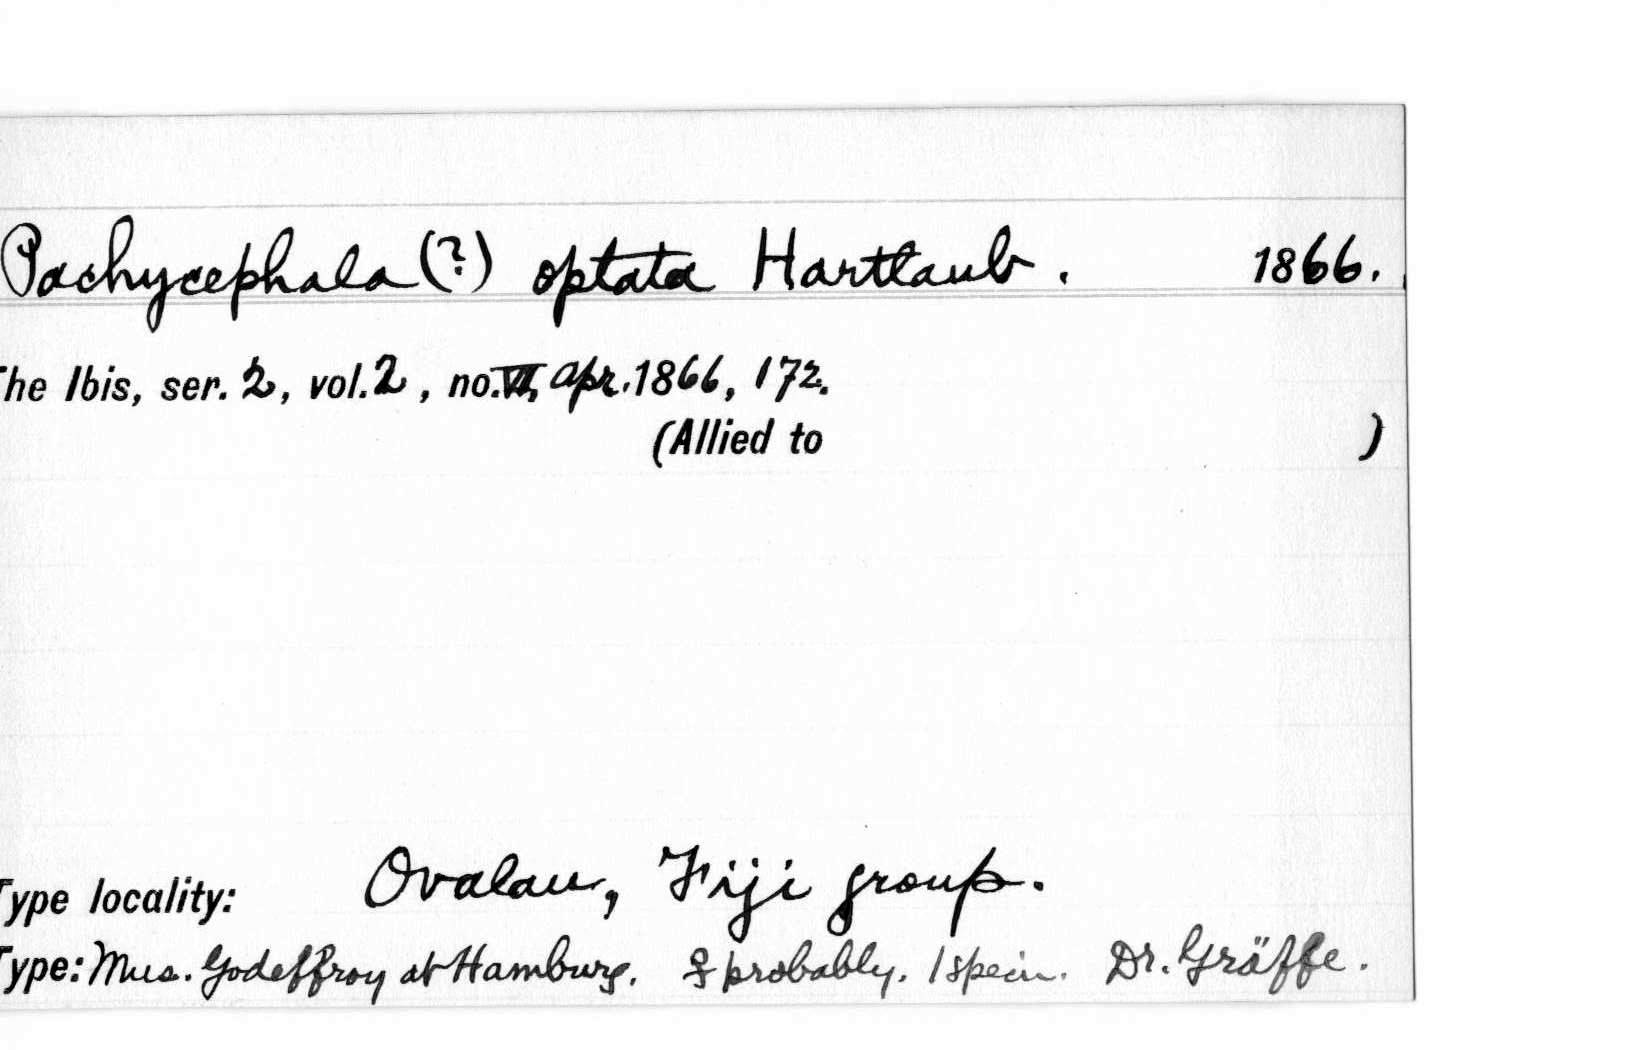 Pachycephala (?) optata Hartlaub. 1866.
The Ibis, ser. 2, vol. 2, no. VI, Apr. 1866, 172.
(Allied to )
Type locality: Ovalau, Fiji group.
Type: Mus. Godeffroy at Hamburg. ♀ probably. 1 specim. Dr. Gräffe.